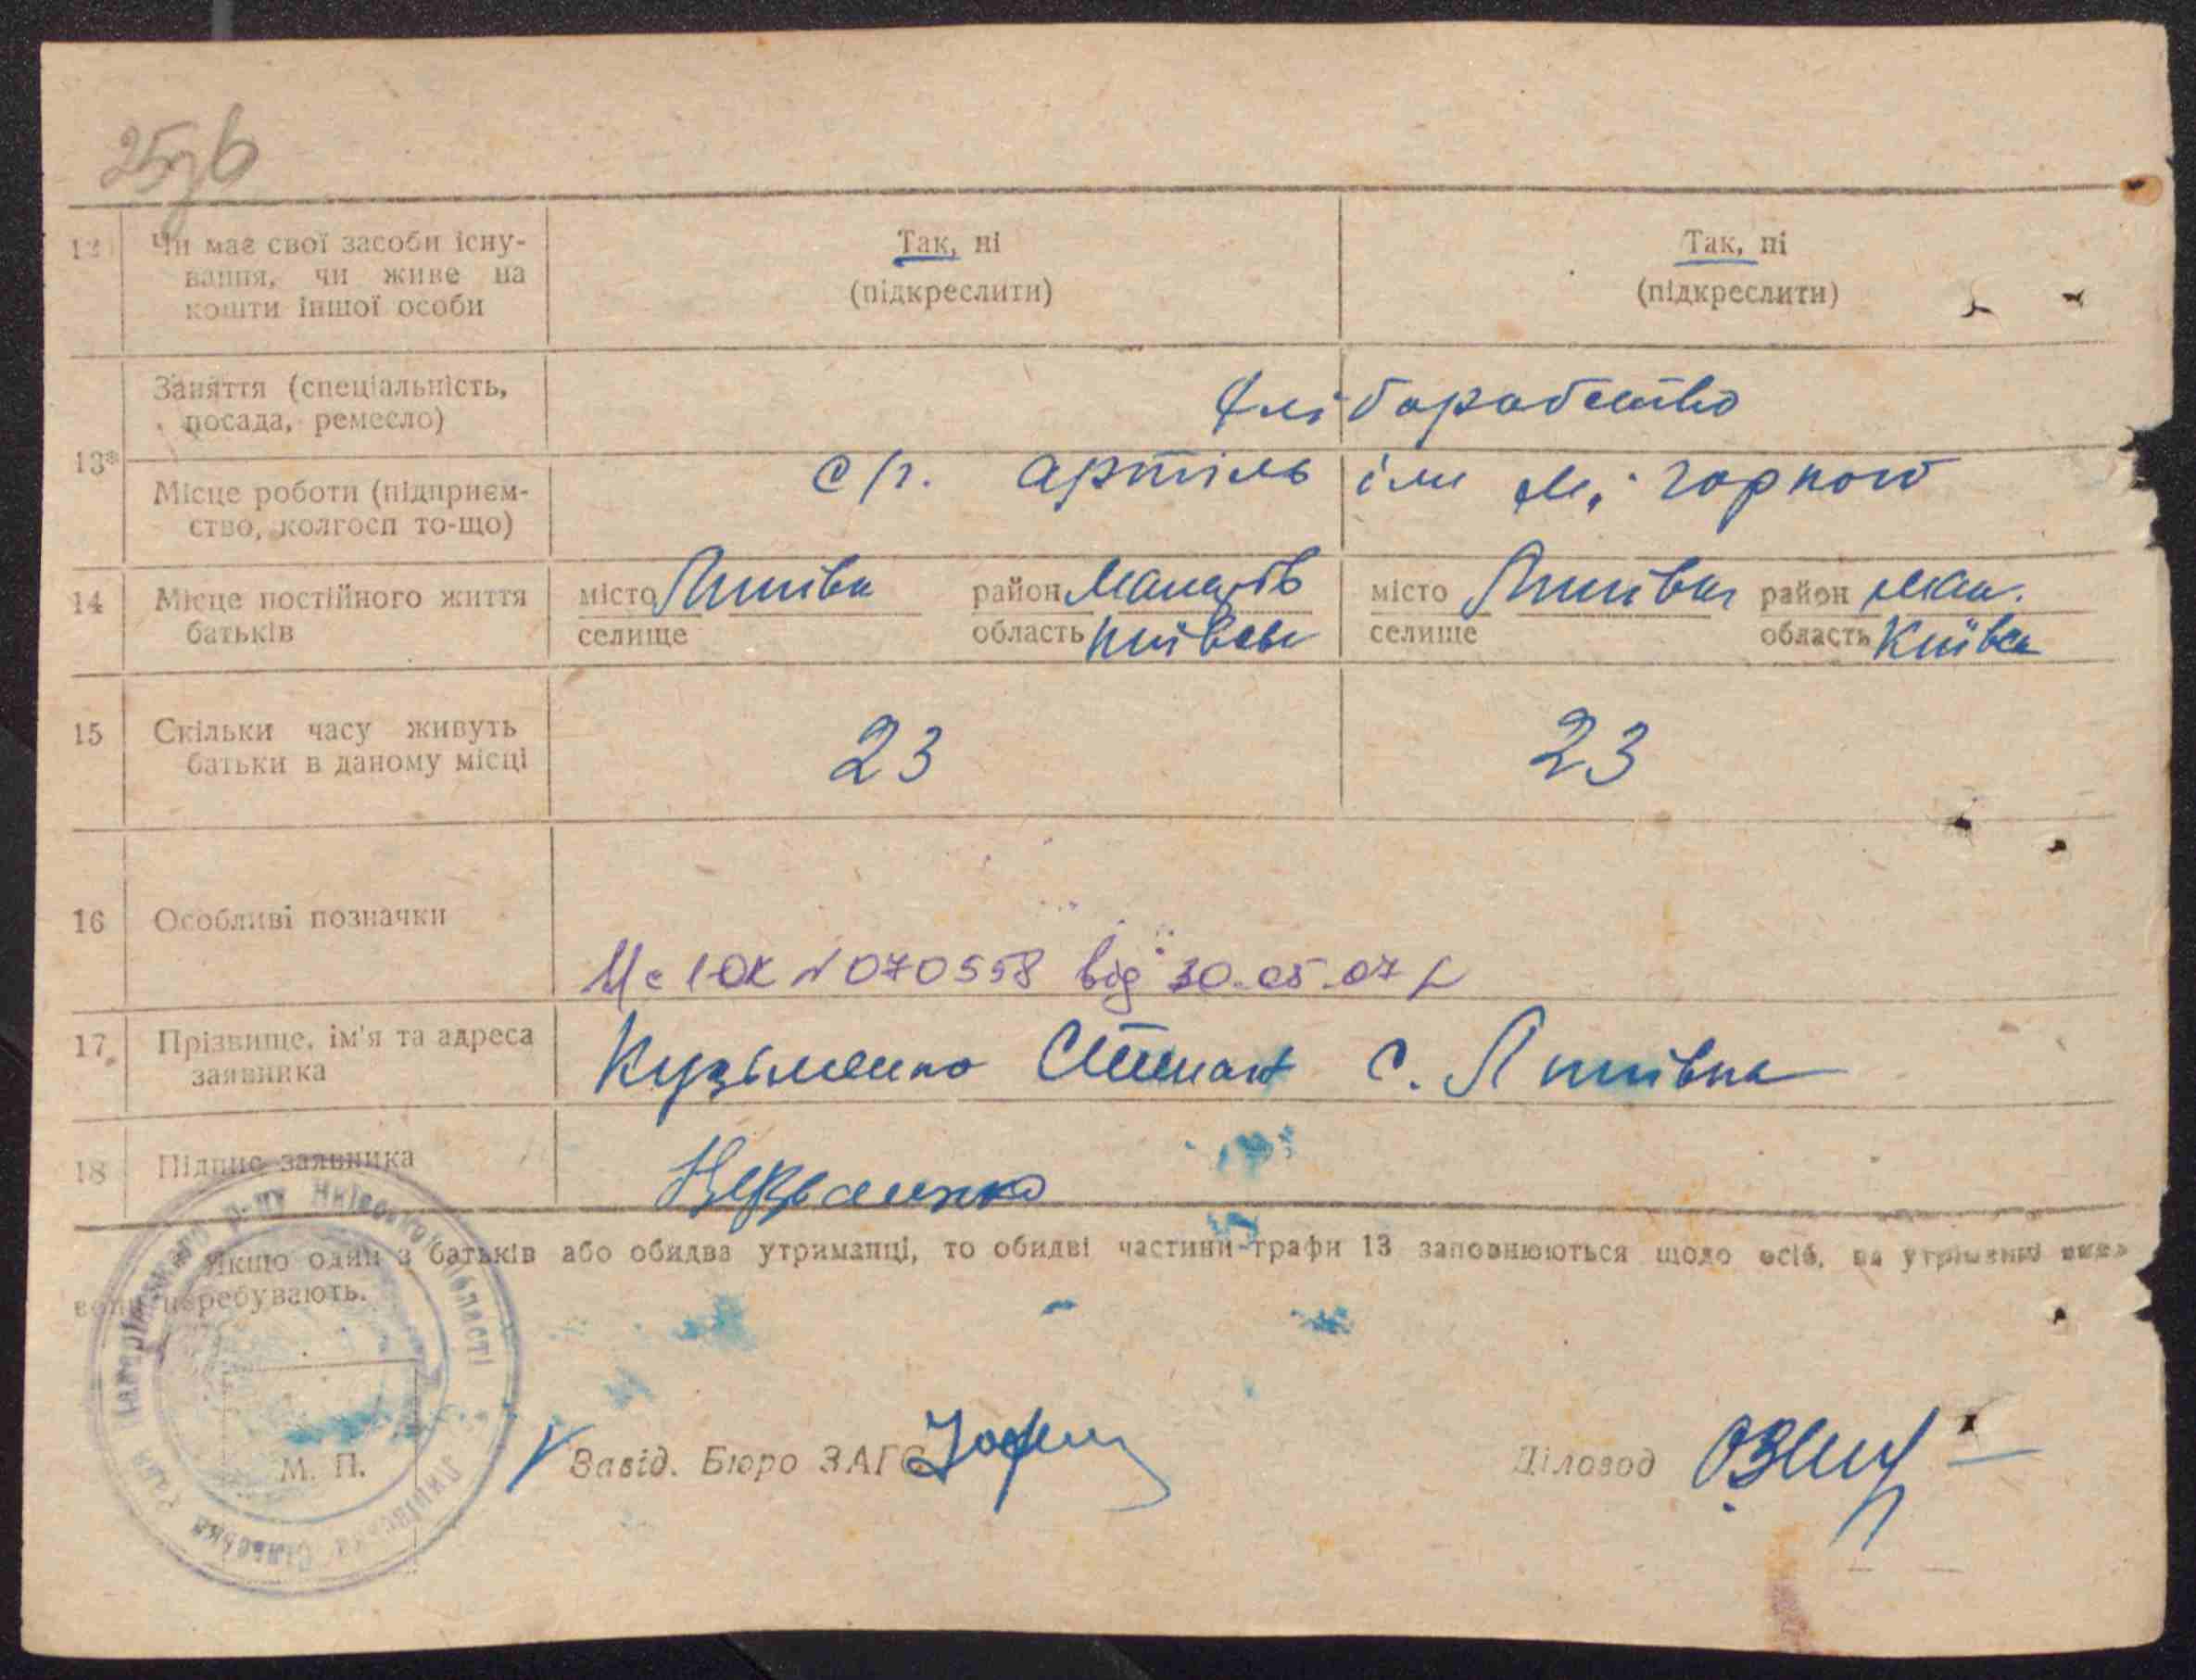 25зв
12 Чи має свої засоби існу-
вання, чи живе на
кошти іншої особи
Так, ні
(підкреслити)
Так, ні
(підкреслити)
13* Заняття (спеціальність,
посада, ремесло)
хліборобство
Місце роботи (підприєм-
ство, колгосп то-що)
с/г. артіль ім М. Горького
14 Місце постійного життя
батьків
місто Липівка район Макарів
селище область Київськ
місто Липівка район Мак.
селище область Київсь
15 Скільки часу живуть
батьки в даному місці
23 23
16 Особливі позначки
№ 070558 від 30.05.07
17 Прізвище, ім'я та адреса
заявника
Кузьменко Степан с. Липівка
18 Підпис заявника
Кузьменко
Якщо один з батьків або обидва утриманці, то обидві частини графи 13 заповнюються щодо осіб, на утриманні яких
вони перебувають.
М. П.
Завід. Бюро ЗАГС
Діловод
Макарівського р-ну Київської області
Липівська Сільська Рада